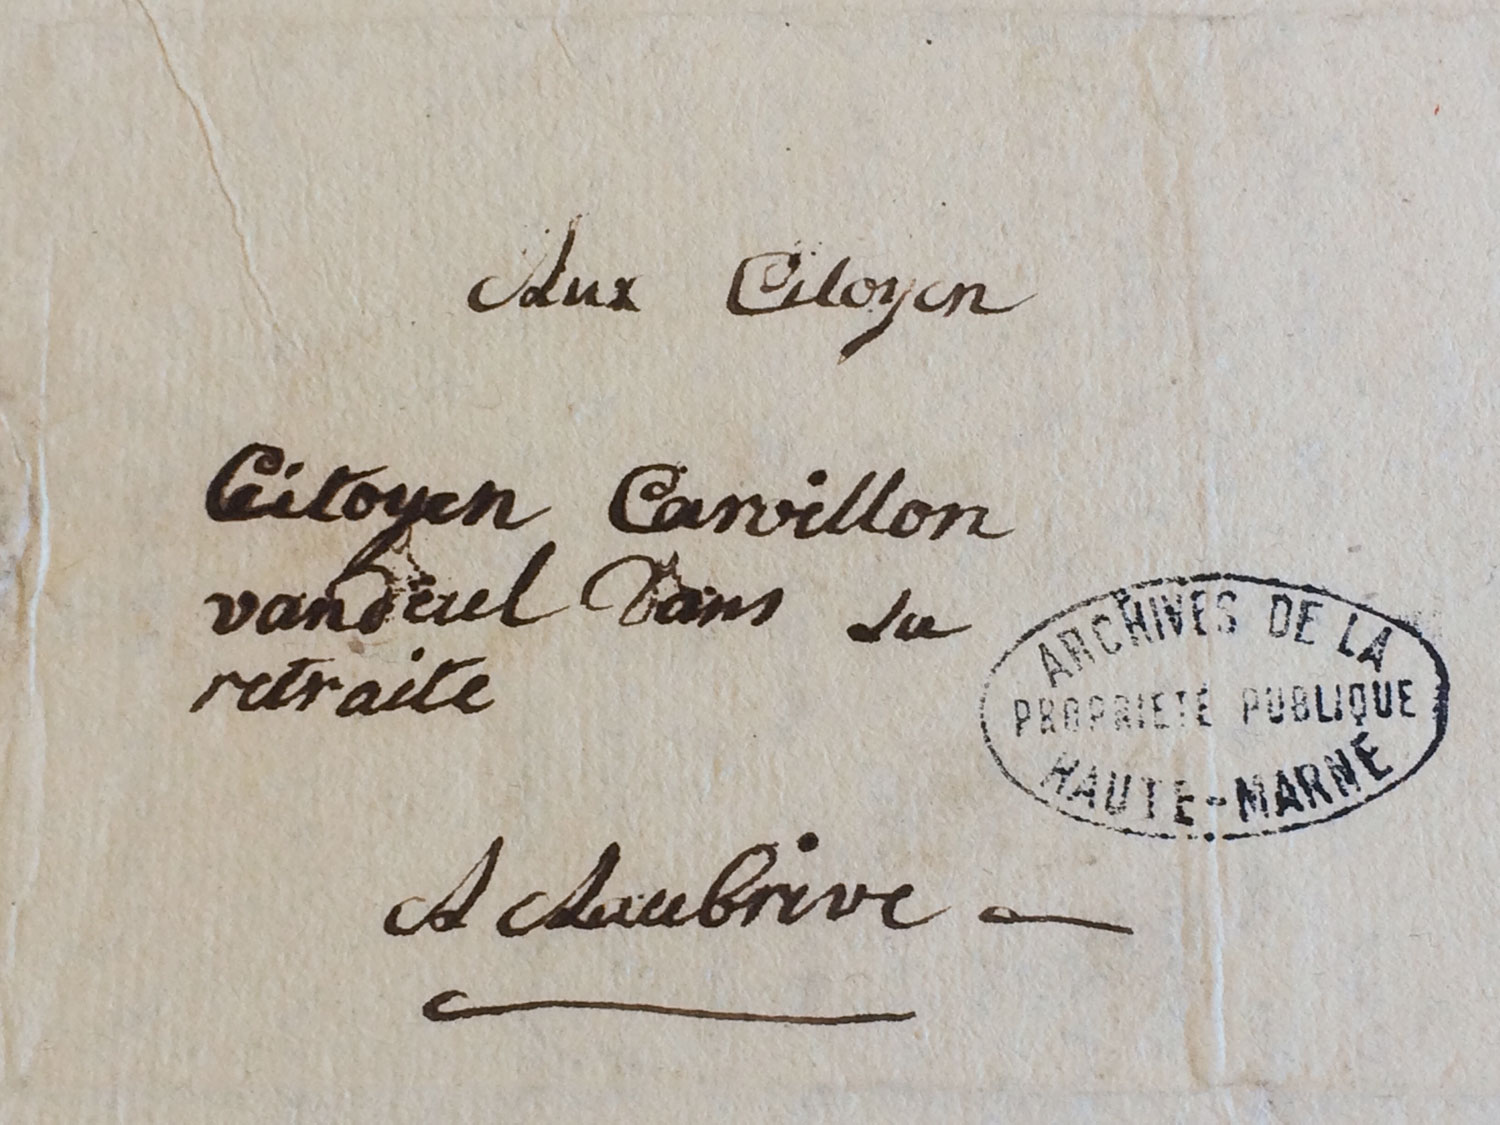 Aux Citoyen
Citoyen Carvillon
vandeul Dans Sa
retraite
A Aubrive
ARCHIVES DE LA
PROPRIETE PUBLIQUE
HAUTE-MARNE